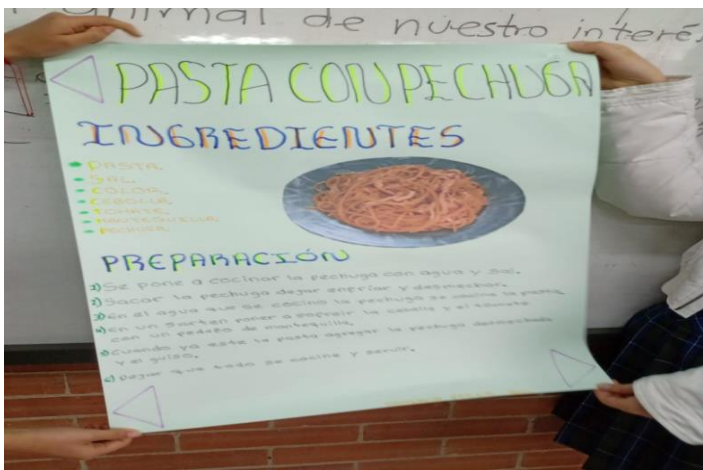 animal de nuestro interé
PASTA CON PECHUGA
INGREDIENTES
PASTA.
SAL.
COLOR.
CEBOLLA.
TOMATE.
MANTEQUILLA.
PECHUGA.
PREPARACIÓN
1) Se pone a cocinar la pechuga con agua y sal.
2) Sacar la pechuga dejar enfriar y desmechar.
3) En el agua que se cocino la pechuga se cocina la pasta.
4) en un sarten poner a sofreir la cebolla y el tomate
con un pedazo de mantequilla.
5) Cuando ya este la pasta agregar la pechuga desmechada
y el guiso.
6) Dejar que todo se cocine y servir.